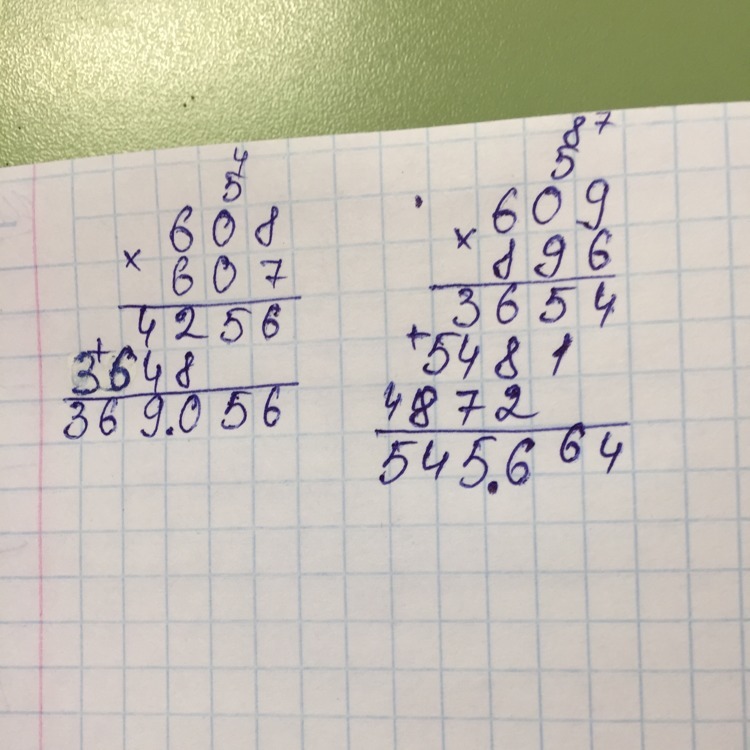 4
5
608
× 607
4256
+
3648
369.056
8 7
5
609
× 896
3654
+ 5481
4872
545.664